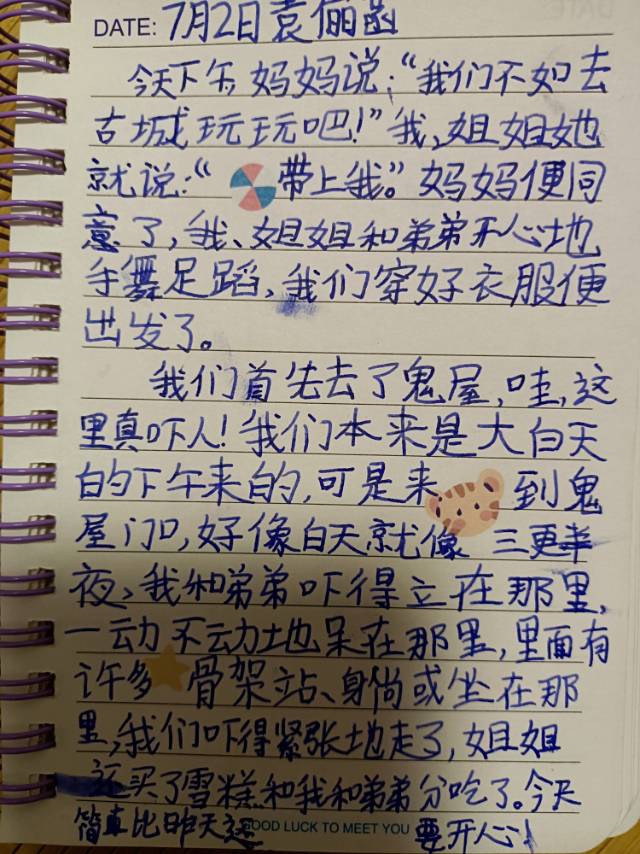 DATE: 7月2日袁俪函
今天下午,妈妈说:“我们不如去
古城玩玩吧!”我,姐姐她
就说:“带上我。”妈妈便同
意了,我、姐姐和弟弟开心地
手舞足蹈,我们穿好衣服便
出发了。
我们首先去了鬼屋,哇,这
里真吓人!我们本来是大白天
的下午来的,可是来到鬼
屋门口,好像白天就像三更半
夜,我和弟弟吓得立在那里,
一动不动地呆在那里,里面有
许多骨架站、身尚或坐在那
里,我们吓得紧张地走了,姐姐
还买了雪糕和我和弟弟分吃了。今天
简直比昨天还要开心!
GOOD LUCK TO MEET YOU